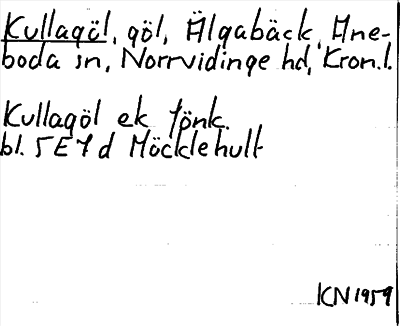 Kullagöl, göl, Älgabäck, Ane-
boda sn, Norrvidinge hd, Kron.l.
Kullagöl ek tönk.
bl. 5E7d Möcklehult
KN 1959